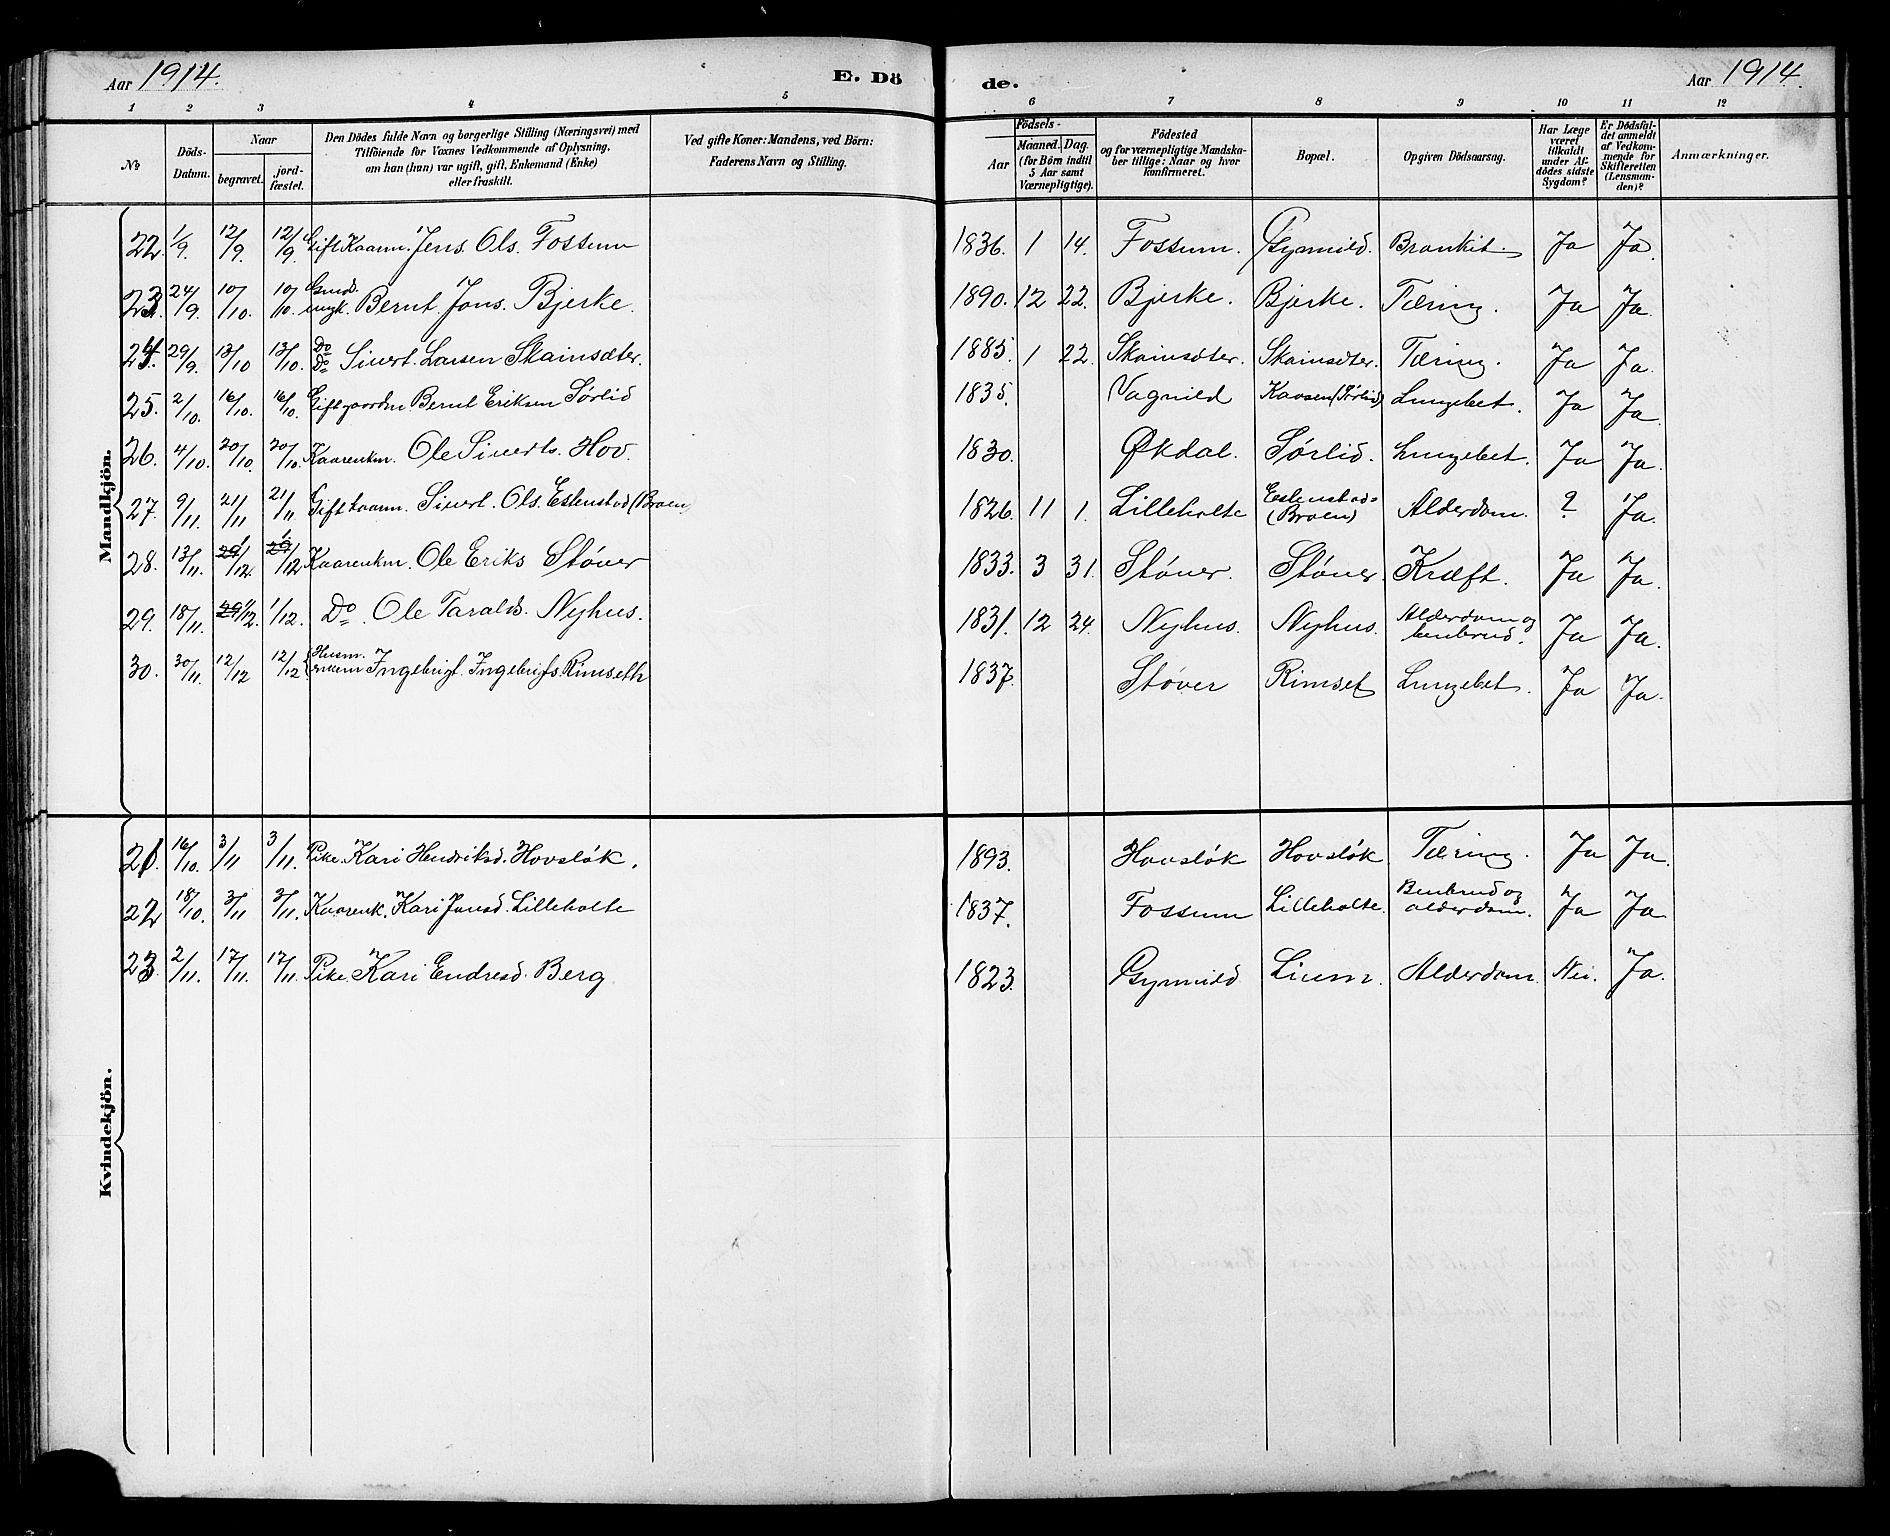 Aar 1914. E. Dö de. Aar 1914.
1 2 3 4 5 6 7 8 9 10 11 12
No Döds-Datum. Naar begravet. jordfæstet. Den Dödes fulde Navn og borgerlige Stilling (Næringsvei) med Tilföiende for Voxnes Vedkommende af Oplysning, om han (hun) var ugift, gift, Enkemand (Enke) eller fraskilt. Ved gifte Koner: Mandens, ved Börn: Faderens Navn og Stilling. Födsels- Aar Maaned. Dag. (for Börn indtil 5 Aar samt Værnepligtige). Födested og for værnepligtige Mandskaber tillige: Naar og hvor konfirmeret. Bopæl. Opgiven Dödsaarsag. Har Læge været tilkaldt under Afdödes sidste Sygdom? Er Dödsfaldet anmeldt af Vedkommende for Skifteretten (Lensmanden)? Anmærkninger.
Mandkjön.
22. 1/9 12/9 12/9 Gift Kaarm. Jens Ols. Fossum 1836. 1 14. Fossum. Gynnild. Bronkit. Ja Ja.
23. 24/9. 10/10. 10/10. Gmd. ungk. Bernt Jons. Bjerke. 1890. 12 22. Bjerke. Bjerke. Tæring. Ja Ja.
24. 29/9. 13/10 13/10. Do Do Sivert Larsen Skainsæter. 1885. 1 22. Skainsæter. Skainsæter. Tæring. Ja Ja.
25. 2/10. 16/10. 16/10. Gift gaardm Bernt Eriksen Sørlid 1835. Vagnild Kavsen (Sørlid) Lungebet. Ja Ja.
26. 4/10. 20/10. 20/10. Kaarenkm. Ole Siverts. Hov. 1830. Økdal. Sørlid. Lungebet. Ja Ja.
27. 9/11. 21/11 21/11. Gift kaarm. Sivert Ols. Estenstad (Broen) 1826. 11 1. Lilleholte Estenstad (Broen) Alderdom. ? Ja.
28. 13/11. 29/1/12. 29/1/12 Kaarenkm. Ole Eriks Støver 1833. 3 31. Støver. Støver. Kræft. Ja Ja.
29. 18/11. 29/1/12. 1/12. Do. Ole Taralds. Nyhus. 1831. 12 24. Nyhus. Nyhus. Alderdom og benbrud. Ja Ja.
30. 30/11. 12/12 12/12. Husm. enkem Ingebrigt Ingebrigts. Rimseth 1837. Støver Rimset Lungebet. Ja Ja.
Kvindekjön.
21. 16/10. 3/11 3/11. Pike. Kari Henriksd. Hovsløk. 1893. Hovsløk Hovsløk Tæring. Ja Ja.
22. 18/10. 3/11 3/11. Kaarenk. Kari Jonsd. Lilleholte 1837. Fossum Lilleholte. Benbrud og alderdom. Ja Ja.
23. 2/11. 17/11. 17/11. Pike. Kari Endresd. Berg 1823. Gynnild Lium. Alderdom. Nei. Ja.